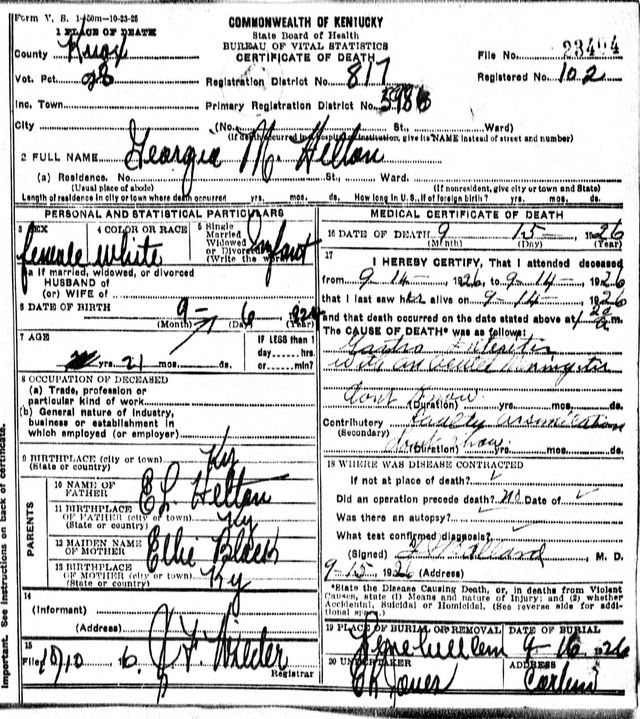 Form V. S. 1-50m-10-23-25
COMMONWEALTH OF KENTUCKY
State Board of Health
BUREAU OF VITAL STATISTICS
CERTIFICATE OF DEATH
1 PLACE OF DEATH
County Knox
File No. 23404
Vot. Pct. 28
Registration District No. 817
Registered No. 102
Inc. Town
Primary Registration District No.
City (No. St., Ward)
(If death occurred in a hospital or institution, give its NAME instead of street and number)
2 FULL NAME Georgia M. Helton
(a) Residence. No. St., Ward.
(Usual place of abode) (If nonresident, give city or town and State)
Length of residence in city or town where death occurred yrs. mos. ds. How long in U. S., if of foreign birth? yrs. mos. ds.
PERSONAL AND STATISTICAL PARTICULARS
3 SEX 4 COLOR OR RACE 5 Single Married Widowed or Divorced (Write the word)
female white Infant
5a If married, widowed, or divorced
HUSBAND of
(or) WIFE of
6 DATE OF BIRTH 9- 6
(Month) (Day) (Year)
7 AGE IF LESS than 1
day hrs.
yrs. 21 mos. ds. or min?
8 OCCUPATION OF DECEASED
(a) Trade, profession or
particular kind of work
(b) General nature of industry,
business or establishment in
which employed (or employer)
9 BIRTHPLACE (city or town) Ky
(State or country)
PARENTS
10 NAME OF
FATHER E L Helton
11 BIRTHPLACE
OF FATHER (city or town) Ky
(State or country)
12 MAIDEN NAME
OF MOTHER Ellie Black
13 BIRTHPLACE
OF MOTHER (city or town) Ky
(State or country)
14
(Informant)
(Address)
15
Filed 10/10 6. J F Wilder
Registrar
MEDICAL CERTIFICATE OF DEATH
16 DATE OF DEATH 9 15- 1926
(Month) (Day) (Year)
17
I HEREBY CERTIFY, That I attended deceased
from 9-14-, 1926, to 9-14-, 1926
that I last saw her alive on 9-14-, 1926
and that death occurred on the date stated above at m.
The CAUSE OF DEATH* was as follows:
Gastro Enteritis
with Meningitis
dont know
(Duration) yrs. mos. ds.
Contributory Faulty assimilation
(Secondary) dont know
(Duration) yrs. mos. ds.
18 WHERE WAS DISEASE CONTRACTED
If not at place of death?
Did an operation precede death? no Date of
Was there an autopsy?
What test confirmed diagnosis?
(Signed) Ballard M. D.
9-15, 1926 (Address)
*State the Disease Causing Death, or, in deaths from Violent
Causes, state (1) Means and nature of Injury; and (2) whether
Accidental, Suicidal or Homicidal. (See reverse side for addi-
tional space.)
19 PLACE OF BURIAL OR REMOVAL DATE OF BURIAL
9-16, 1926
20 UNDERTAKER ADDRESS
Jones Corbin
Important. See instructions on back of certificate.